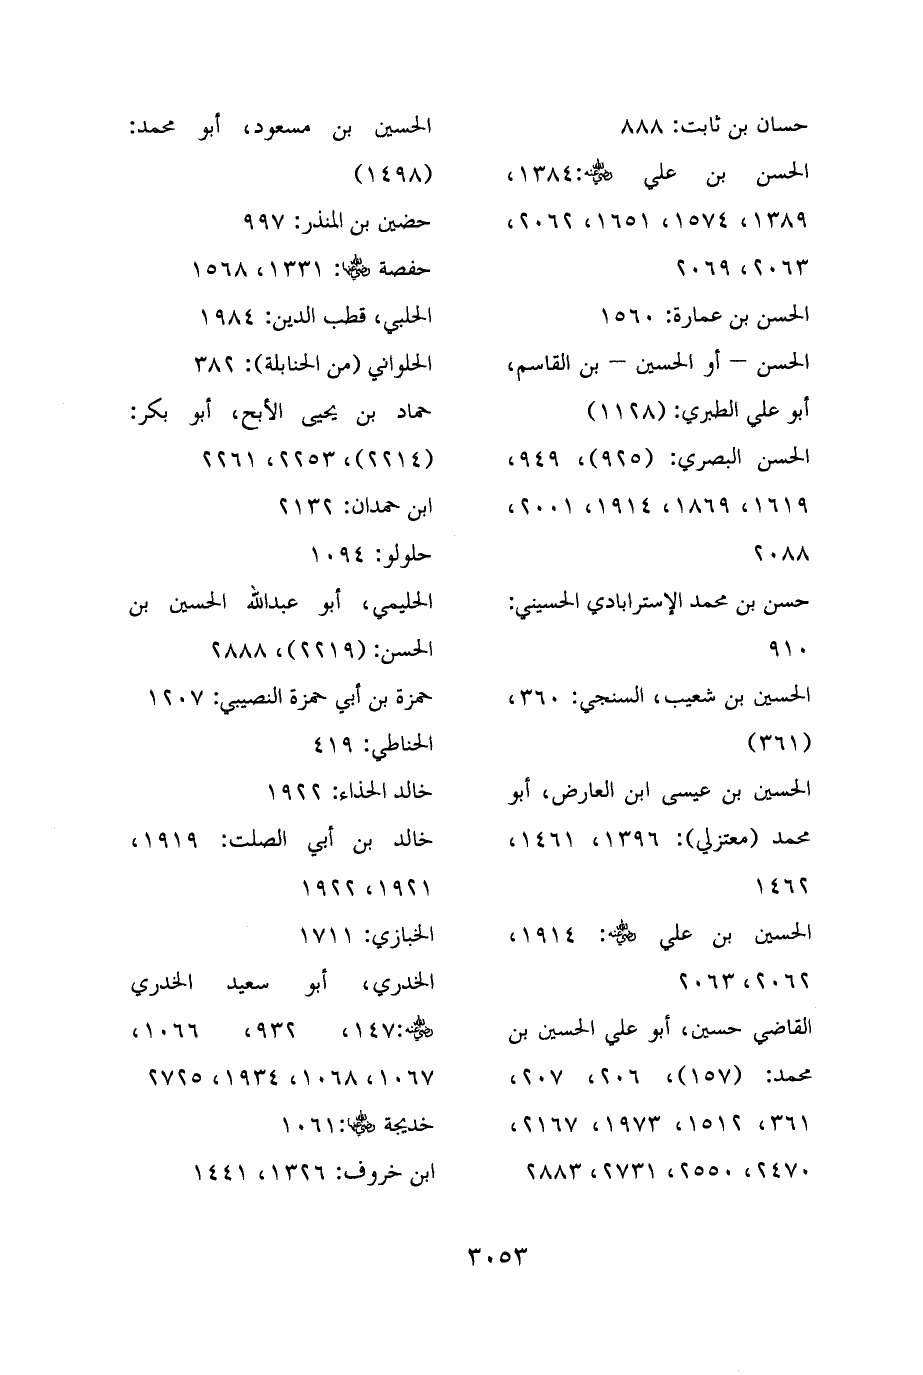 حسان بن ثابت: ٨٨٨
الحسن بن علي رضي الله عنه: ١٣٨٤،
١٣٨٩، ١٥٧٤، ١٦٥١، ٢٠٦٢،
٢٠٦٣، ٢٠٦٩
الحسن بن عمارة: ١٥٦٠
الحسن – أو الحسين – بن القاسم،
أبو علي الطبري: (١١٢٨)
الحسن البصري: (٩٢٥)، ٩٤٩،
١٦١٩، ١٨٦٩، ١٩١٤، ٢٠٠١،
٢٠٨٨
حسن بن محمد الإسترابادي الحسيني:
٩١٠
الحسين بن شعيب، السنجي: ٣٦٠،
(٣٦١)
الحسين بن عيسى ابن العارض، أبو
محمد (معتزلي): ١٣٩٦، ١٤٦١،
١٤٦٢
الحسين بن علي رضي الله عنه: ١٩١٤،
٢٠٦٢، ٢٠٦٣
القاضي حسين، أبو علي الحسين بن
محمد: (١٥٧)، ٢٠٦، ٢٠٧،
٣٦١، ١٥١٢، ١٩٧٣، ٢١٦٧،
٢٤٧٠، ٢٥٥٠، ٢٧٣١، ٢٨٨٣
الحسين بن مسعود، أبو محمد:
(١٤٩٨)
حضين بن المنذر: ٩٩٧
حفصة رضي الله عنها: ١٣٣١، ١٥٦٨
الحلبي، قطب الدين: ١٩٨٤
الحلواني (من الحنابلة): ٣٨٢
حماد بن يحيى الأبح، أبو بكر:
(٢٢١٤)، ٢٢٥٣، ٢٢٦١
ابن حمدان: ٢١٣٢
حلولو: ١٠٩٤
الحليمي، أبو عبدالله الحسين بن
الحسن: (٢٢١٩)، ٢٨٨٨
حمزة بن أبي حمزة النصيبي: ١٢٠٧
الحناطي: ٤١٩
خالد الحذاء: ١٩٢٢
خالد بن أبي الصلت: ١٩١٩،
١٩٢١، ١٩٢٢
الخبازي: ١٧١١
الخدري، أبو سعيد الخدري
رضي الله عنه: ١٤٧، ٩٣٢، ١٠٦٦،
١٠٦٧، ١٠٦٨، ١٩٣٤، ٢٧٢٥
خديجة رضي الله عنها: ١٠٦١
ابن خروف: ١٣٢٦، ١٤٤١
٣٠٥٣